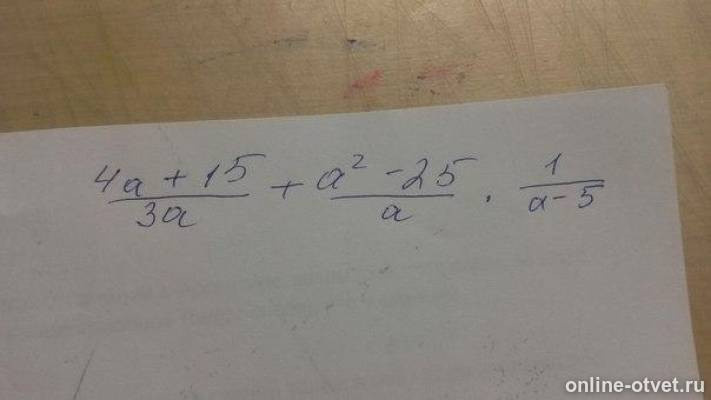 (4a + 15)/(3a) + (a² - 25)/a · 1/(a - 5)
online-otvet.ru